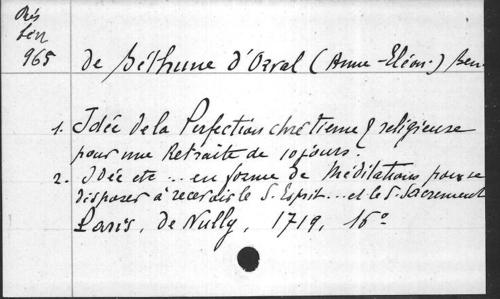 Rés
965
de Béthune d'Orval (Anne-Eléon.) Ben.
1. Idée de la Perfection chrétienne & religieuse
pour une Retraite de 10 jours.
2. Idée etc ... en forme de Méditations pour se
disposer à recevoir le S. Esprit ... et le S. Sacrement
Paris, de Nully, 1719, 16°